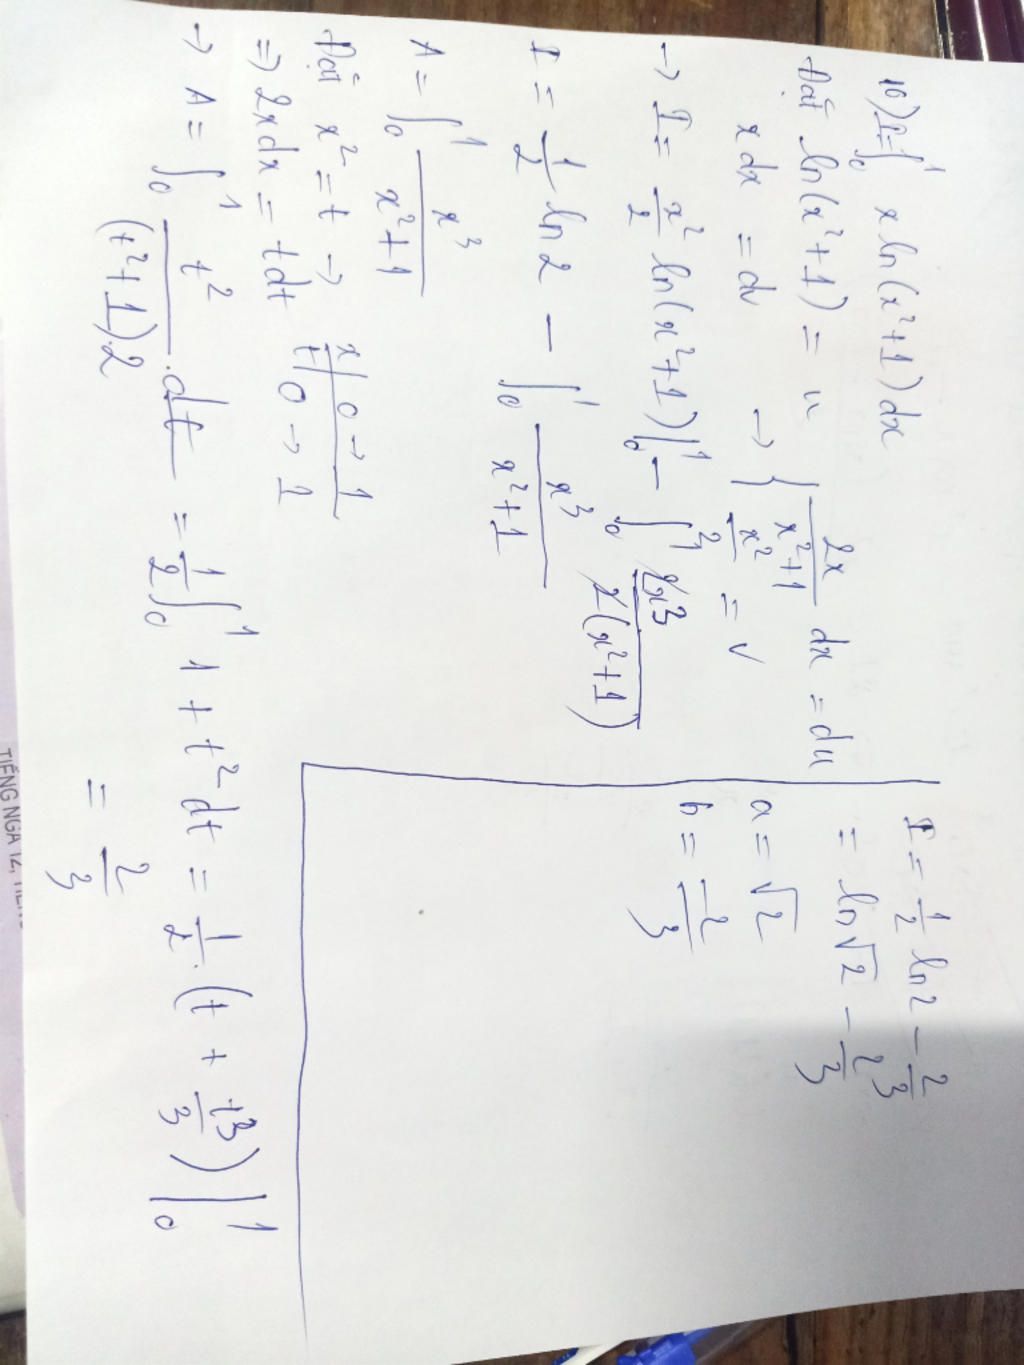 10) I = ∫₀¹ x ln(x²+1) dx
Đặt ln(x²+1) = u → { 2x/(x²+1) dx = du
x dx = dv x²/2 = v
→ I = x²/2 ln(x²+1) |₀¹ − ∫₀¹ 2x³/2(x²+1)
I = 1/2 ln2 − ∫₀¹ x³/(x²+1)
A = ∫₀¹ x³/(x²+1)
Đặt x² = t → x | 0 → 1
⇒ 2xdx = tdt t | 0 → 1
→ A = ∫₀¹ t²/((t²+1).2) . dt = 1/2 ∫₀¹ 1 + t² dt = 1/2 . (t + t³/3) |₀¹
= 2/3
I = 1/2 ln2 − 2/3
= ln√2 − 2/3
a = √2
b = −2/3
TIẾNG NGA 12,